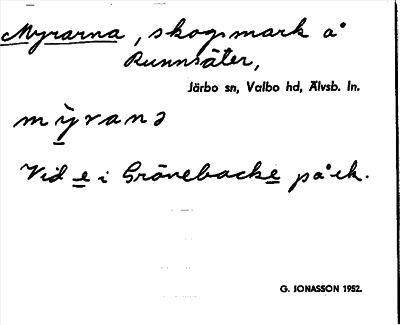 Myrarna, skogsmark å
Runnsäter,
Järbo sn, Valbo hd, Älvsb. ln.
mỳranə
Vid e i Grönebacke på ek.
G. JONASSON 1952.